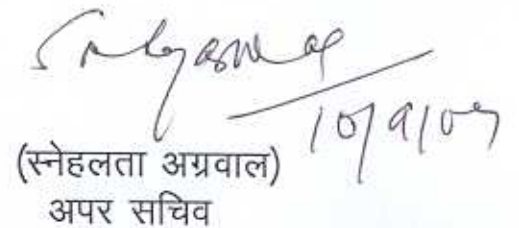 10/9/07
(स्नेहलता अग्रवाल)
अपर सचिव